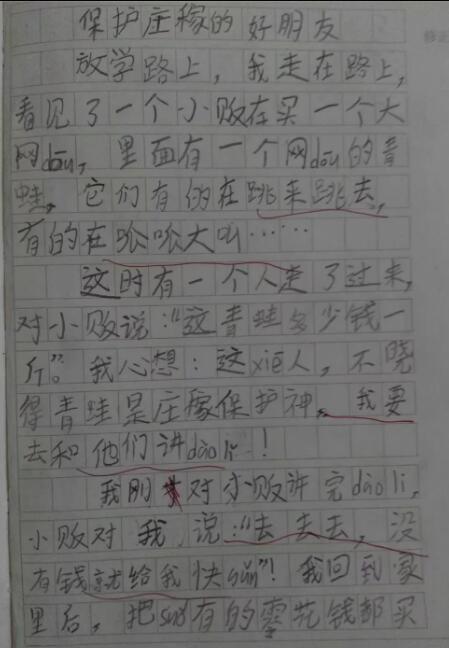 保护庄稼的好朋友
放学路上，我走在路上，
看见了一个小贩在买一个大
网dōu，里面有一个网dōu的青
蛙，它们有的在跳来跳去，
有的在呱呱大叫……
这时有一个人走了过来，
对小贩说：“这青蛙多少钱一
斤”。我心想：这xiē人，不晓
得青蛙是庄稼保护神，我要
去和他们讲dào lǐ！
我刚对小贩讲完dào li，
小贩对我说：“去去去，没
有钱就给我快gǔn”！我回到家
里后，把suǒ有的零花钱都买